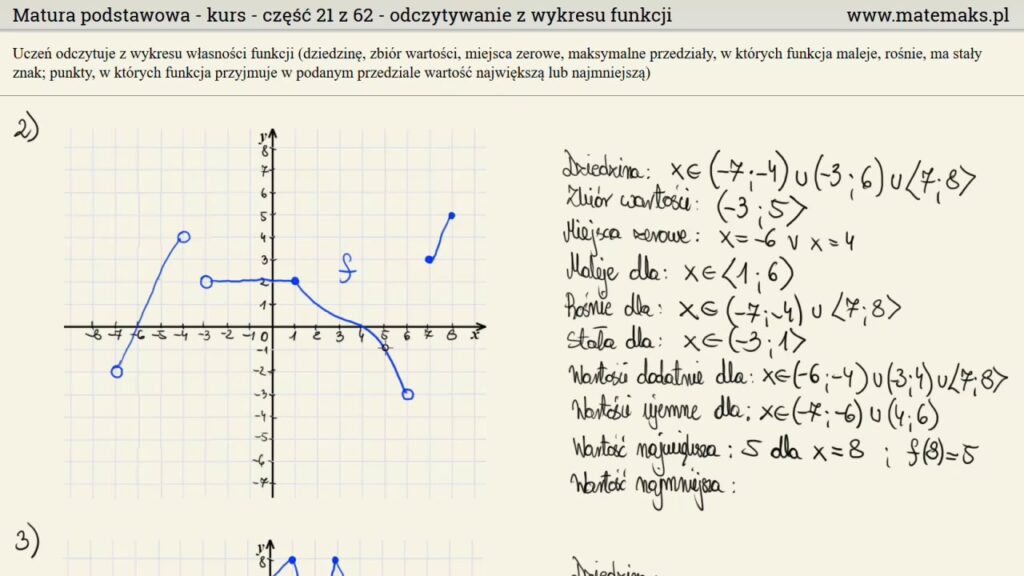 Matura podstawowa - kurs - część 21 z 62 - odczytywanie z wykresu funkcji www.matemaks.pl
Uczeń odczytuje z wykresu własności funkcji (dziedzinę, zbiór wartości, miejsca zerowe, maksymalne przedziały, w których funkcja maleje, rośnie, ma stały
znak; punkty, w których funkcja przyjmuje w podanym przedziale wartość największą lub najmniejszą)
2)
y
8
7
6
5
4
3
2
1
-8 -7 -6 -5 -4 -3 -2 -1 0 1 2 3 4 5 6 7 8 x
-1
-2
-3
-4
-5
-6
-7
f
Dziedzina: x∈(-7;-4)∪(-3;6)∪⟨7;8⟩
Zbiór wartości: (-3;5⟩
Miejsca zerowe: x=-6 ∨ x=4
Maleje dla: x∈⟨1;6)
Rośnie dla: x∈(-7;-4)∪⟨7;8⟩
Stała dla: x∈(-3;1⟩
Wartości dodatnie dla: x∈(-6;-4)∪(-3;4)∪⟨7;8⟩
Wartości ujemne dla: x∈(-7;-6)∪(4;6)
Wartość największa: 5 dla x=8 ; f(8)=5
Wartość najmniejsza:
3)
y
8
Dziedzina: